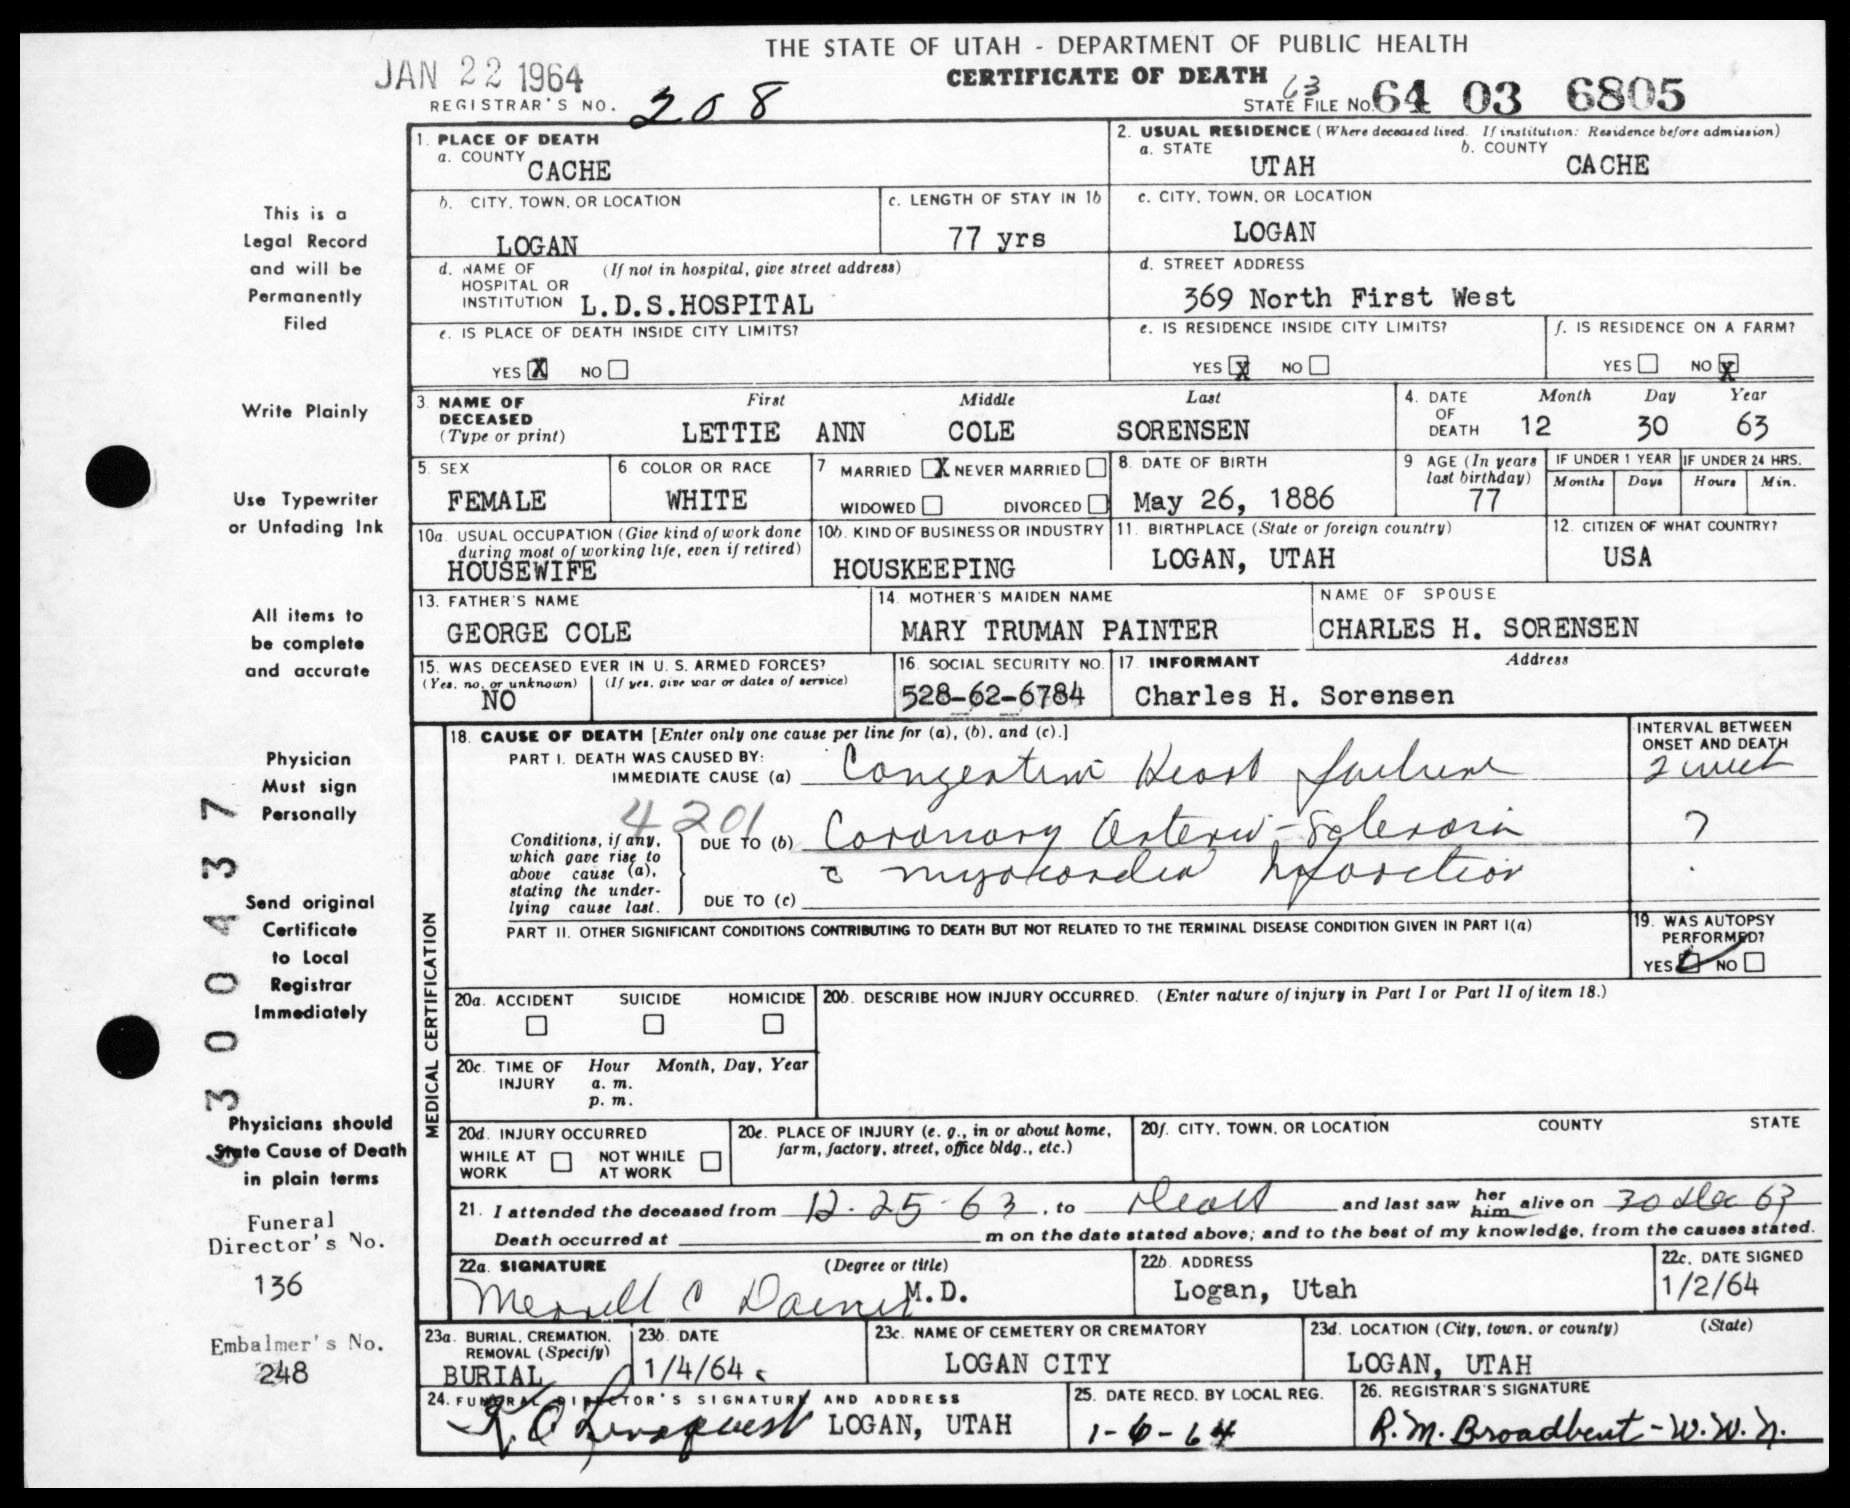 THE STATE OF UTAH - DEPARTMENT OF PUBLIC HEALTH
JAN 22 1964
CERTIFICATE OF DEATH
REGISTRAR'S NO. 208
63
STATE FILE NO. 64 03 6805
1. PLACE OF DEATH
a. COUNTY CACHE
2. USUAL RESIDENCE (Where deceased lived. If institution: Residence before admission)
a. STATE UTAH b. COUNTY CACHE
b. CITY, TOWN, OR LOCATION LOGAN
c. LENGTH OF STAY IN 1b 77 yrs
c. CITY, TOWN, OR LOCATION LOGAN
d. NAME OF HOSPITAL OR INSTITUTION (If not in hospital, give street address) L.D.S.HOSPITAL
d. STREET ADDRESS 369 North First West
e. IS PLACE OF DEATH INSIDE CITY LIMITS?
YES X NO
e. IS RESIDENCE INSIDE CITY LIMITS?
YES X NO
f. IS RESIDENCE ON A FARM?
YES NO X
3. NAME OF DECEASED (Type or print) First Middle Last
LETTIE ANN COLE SORENSEN
4. DATE OF DEATH Month Day Year
12 30 63
5. SEX FEMALE
6. COLOR OR RACE WHITE
7. MARRIED X NEVER MARRIED
WIDOWED DIVORCED
8. DATE OF BIRTH May 26, 1886
9. AGE (In years last birthday) 77
IF UNDER 1 YEAR Months Days
IF UNDER 24 HRS. Hours Min.
10a. USUAL OCCUPATION (Give kind of work done during most of working life, even if retired)
HOUSEWIFE
10b. KIND OF BUSINESS OR INDUSTRY
HOUSKEEPING
11. BIRTHPLACE (State or foreign country)
LOGAN, UTAH
12. CITIZEN OF WHAT COUNTRY?
USA
13. FATHER'S NAME
GEORGE COLE
14. MOTHER'S MAIDEN NAME
MARY TRUMAN PAINTER
NAME OF SPOUSE
CHARLES H. SORENSEN
15. WAS DECEASED EVER IN U. S. ARMED FORCES?
(Yes, no, or unknown) (If yes, give war or dates of service)
NO
16. SOCIAL SECURITY NO.
528-62-6784
17. INFORMANT Address
Charles H. Sorensen
MEDICAL CERTIFICATION
18. CAUSE OF DEATH [Enter only one cause per line for (a), (b), and (c).]
INTERVAL BETWEEN ONSET AND DEATH
PART I. DEATH WAS CAUSED BY:
IMMEDIATE CAUSE (a) Congestive Heart failure 2 week
4201
Conditions, if any, which gave rise to above cause (a), stating the underlying cause last.
DUE TO (b) Coronary Arterio-Sclerosis ?
c myocardial Infarction
DUE TO (c)
PART II. OTHER SIGNIFICANT CONDITIONS CONTRIBUTING TO DEATH BUT NOT RELATED TO THE TERMINAL DISEASE CONDITION GIVEN IN PART I(a)
19. WAS AUTOPSY PERFORMED?
YES ✓ NO
20a. ACCIDENT SUICIDE HOMICIDE
20b. DESCRIBE HOW INJURY OCCURRED. (Enter nature of injury in Part I or Part II of item 18.)
20c. TIME OF INJURY Hour Month, Day, Year
a. m.
p. m.
20d. INJURY OCCURRED
WHILE AT WORK NOT WHILE AT WORK
20e. PLACE OF INJURY (e. g., in or about home, farm, factory, street, office bldg., etc.)
20f. CITY, TOWN, OR LOCATION COUNTY STATE
21. I attended the deceased from 12-25-63, to Death and last saw her him alive on 30 Dec 63
Death occurred at m on the date stated above; and to the best of my knowledge, from the causes stated.
22a. SIGNATURE (Degree or title)
Merrell C Daines M.D.
22b. ADDRESS
Logan, Utah
22c. DATE SIGNED
1/2/64
23a. BURIAL, CREMATION, REMOVAL (Specify)
BURIAL
23b. DATE
1/4/64
23c. NAME OF CEMETERY OR CREMATORY
LOGAN CITY
23d. LOCATION (City, town, or county) (State)
LOGAN, UTAH
24. FUNERAL DIRECTOR'S SIGNATURE AND ADDRESS
K. O. Lindquist LOGAN, UTAH
25. DATE RECD. BY LOCAL REG.
1-6-64
26. REGISTRAR'S SIGNATURE
R.M. Broadbent - W.W.N.
This is a
Legal Record
and will be
Permanently
Filed
Write Plainly
Use Typewriter
or Unfading Ink
All items to
be complete
and accurate
Physician
Must sign
Personally
Send original
Certificate
to Local
Registrar
Immediately
Physicians should
State Cause of Death
in plain terms
Funeral
Director's No.
136
Embalmer's No.
248
6300437